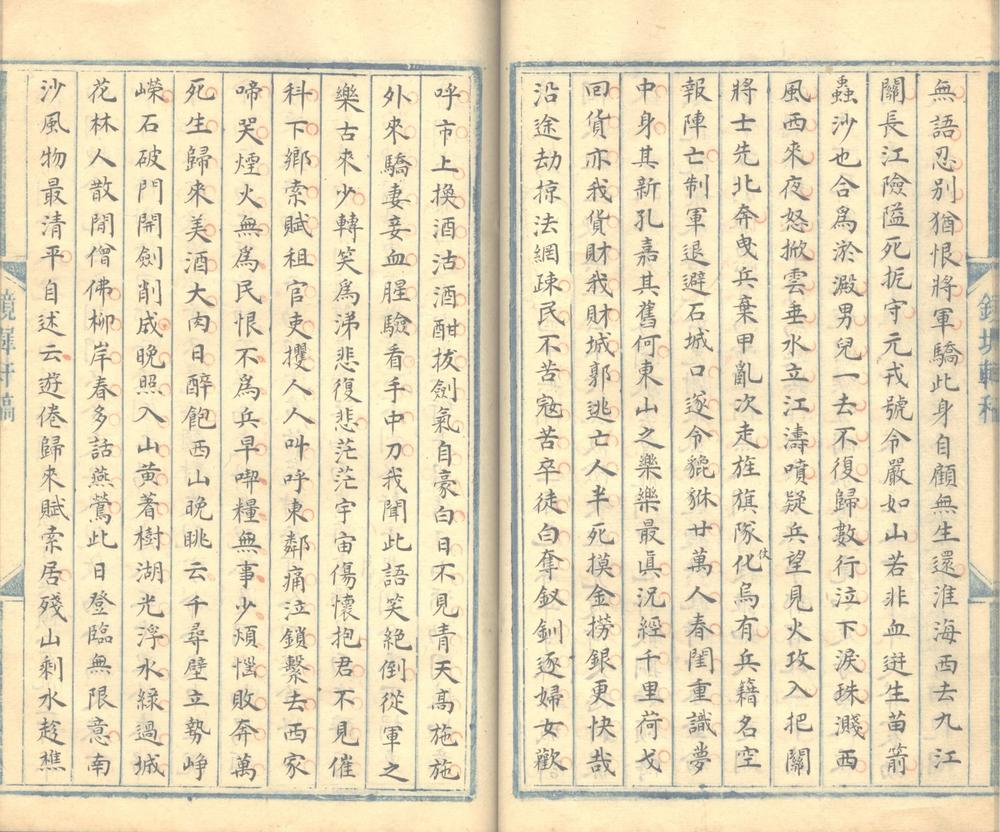 無語忍別猶恨將軍驕此身自顧無生還淮海西去九江
關長江險隘死扼守元戎號令嚴如山若非血迸生苗箭
蟲沙也合爲淤澱男兒一去不復歸數行泣下淚珠濺西
風西來夜怒掀雲垂水立江濤噴疑兵望見火攻入把關
將士先北奔曳兵棄甲亂次走旌旗隊仗化烏有兵籍名空
報陣亡制軍退避石城口遂令貔貅廿萬人春閨重識夢
中身其新孔嘉其舊何東山之樂樂最眞況經千里荷戈
回貨亦我貨財我財城郭逃亡人半死摸金撈銀更快哉
沿途劫掠法網疎民不苦寇苦卒徒白奪釵釧逐婦女歡
呼市上換酒沽酒酣拔劍氣自豪白日不見青天高施施
外來驕妻妾血腥驗看手中刀我聞此語笑絕倒從軍之
樂古來少轉笑爲涕悲復悲茫茫宇宙傷懷抱君不見催
科下鄉索賦租官吏攫人人叫呼東鄰痛泣鎖繫去西家
啼哭煙火無爲民恨不爲兵早喫糧無事少煩惱敗奔萬
死生歸來美酒大肉日醉飽西山晚眺云千尋壁立勢崢
嶸石破門開劍削成晚照入山黃著樹湖光浮水綠過城
花林人散閒僧佛柳岸春多話燕鶯此日登臨無限意南
沙風物最清平自述云遊倦歸來賦索居殘山剩水趁樵